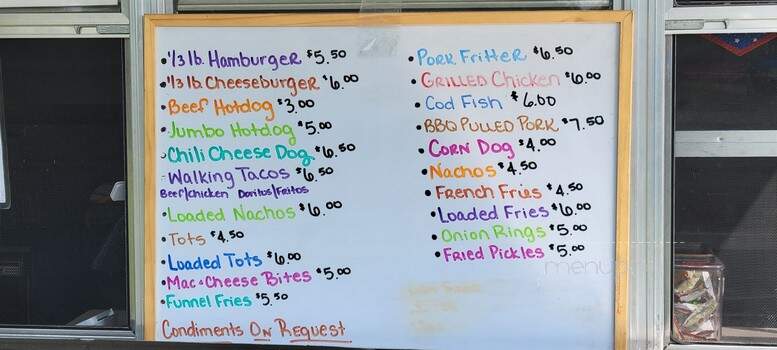 •1/3 lb. Hamburger $5.50
•1/3 lb. Cheeseburger $6.00
•Beef Hotdog $3.00
•Jumbo Hotdog $5.00
•Chili Cheese Dog $6.50
-Walking Tacos $6.50
Beef/Chicken Doritos/Fritos
•Loaded Nachos $6.00
•Tots $4.50
•Loaded Tots $6.00
•Mac+Cheese Bites $5.00
•Funnel Fries $5.50
Condiments On Request
•Pork Fritter $6.50
•Grilled Chicken $6.00
•Cod Fish $6.00
•BBQ Pulled Pork $7.50
•Corn Dog $4.00
•Nachos $4.50
•French Fries $4.50
•Loaded Fries $6.00
•Onion Rings $5.00
•Fried Pickles $5.00